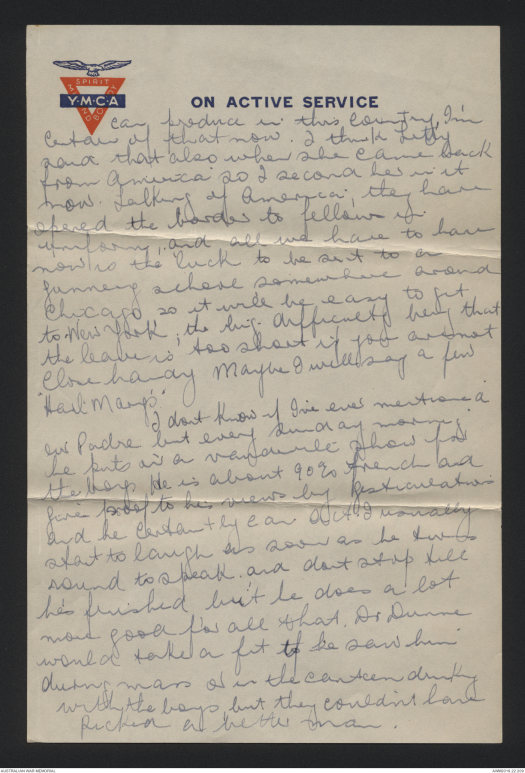 SPIRIT
Y·M·C·A
MIND
BODY
ON ACTIVE SERVICE
can produce in this country, I'm
certain of that now. I think Letty
said that also when she came back
from America so I second her in it
now. Talking of America; they have
opened the border to fellows in
uniform, and all we have to have
now is the luck to be sent to a
gunnery schore somewhere around
Chicago so it will be easy to get
to New York, the big difficulty being that
the leave is too short if you are not
close handy Maybe I will say a few
"Hail Marys"
I dont know if I've ever mentioned
our Padre but every Sunday morning
he puts on a vaudeville show for
the boys. He is about 90% French and
gives to his views by gesticulations
and he certaintly can act. I usually
start to laugh as soon as he turns
round to speak and dont stop till
he's finished but he does a lot
more good for all that. Dr Dunne
would take a fit if he saw him
during mass or in the canteen drinking
with the boys but they couldn't have
picked a better man.
AUSTRALIAN WAR MEMORIAL